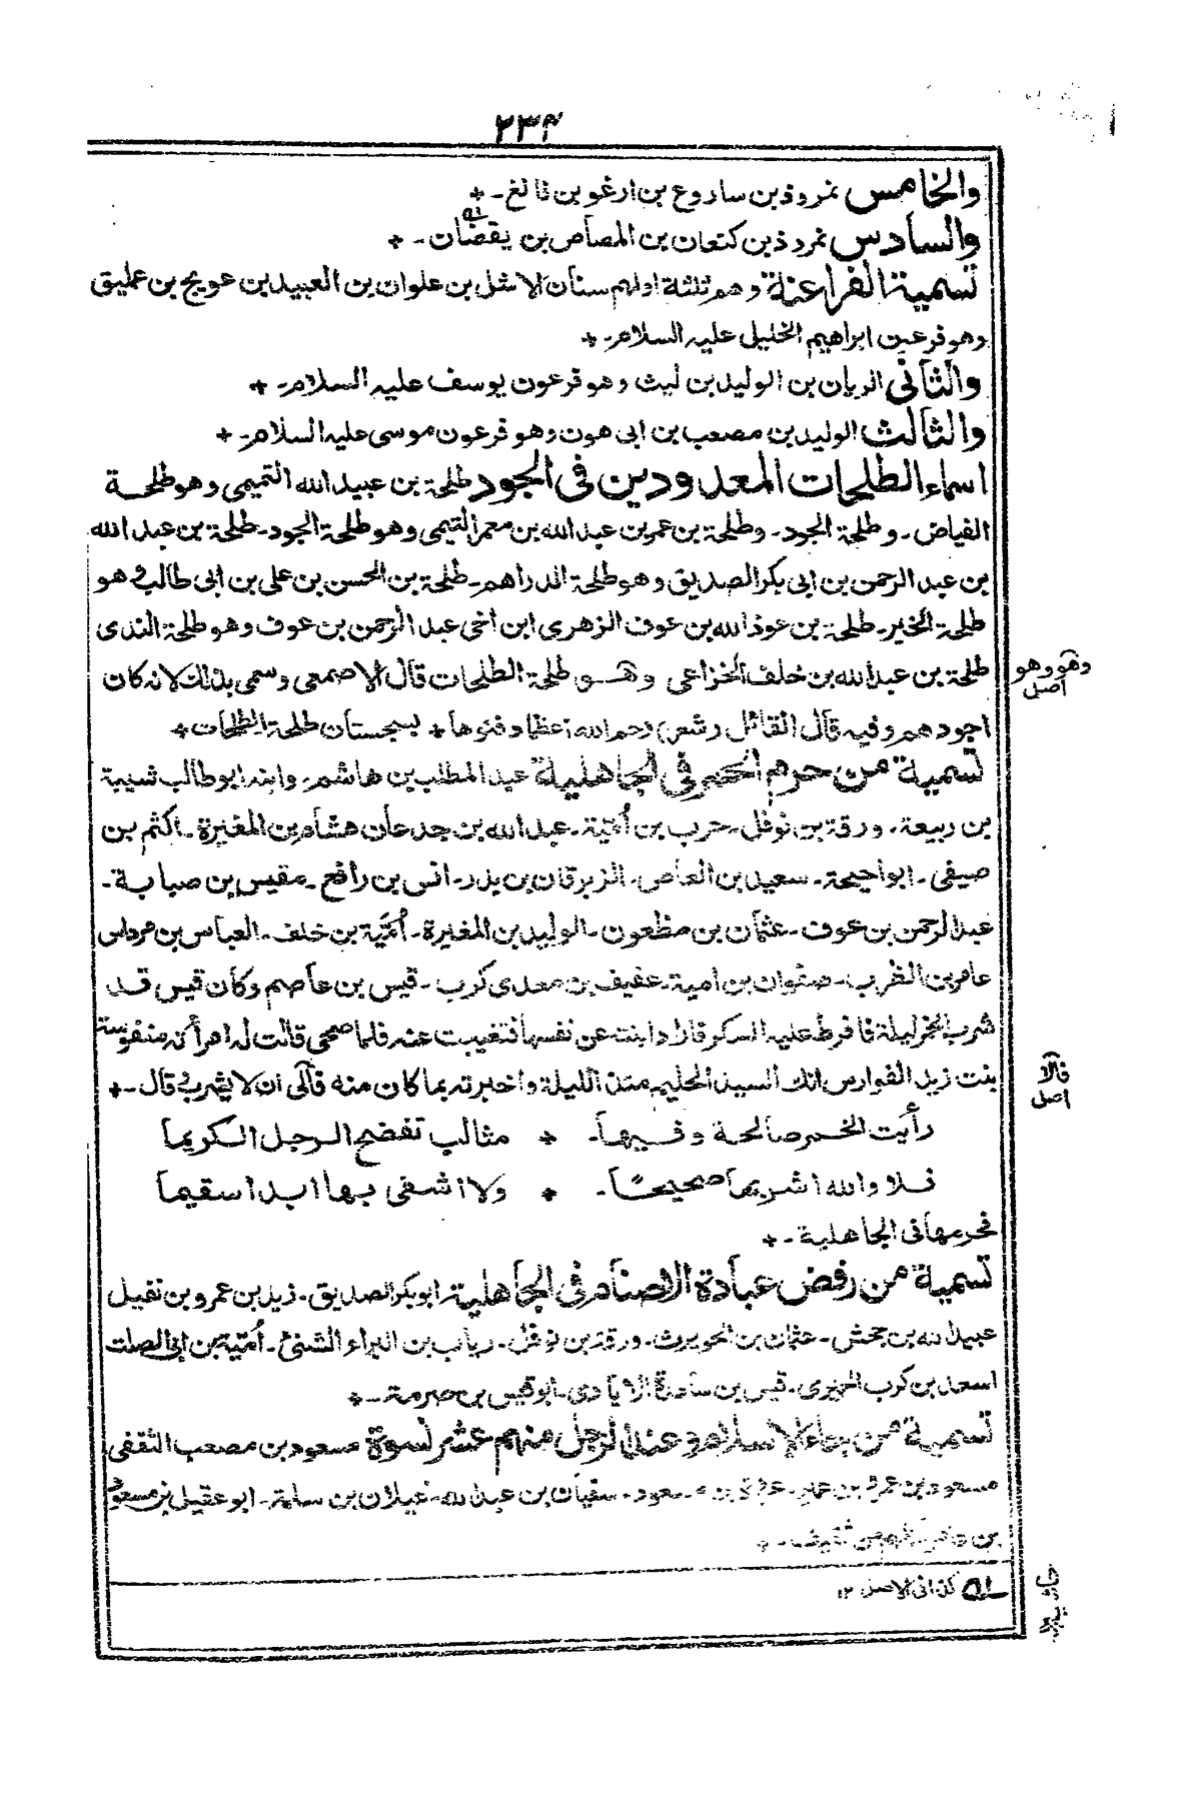 ٢٣٤
والخامس نمروذ بن ساروع بن ارغو بن فالغ ـ +
والسادس نمروذ بن كنعان بن المصاص بن يقضان ـ +
تسمية الفراعنة وهم ثلثة اولهم سنان الاشل بن علوان بن العبيد بن عويج بن عمليق
وهو فرعون ابراهيم الخليل عليه السلام ـ +
والثانى الريان بن الوليد بن ليث وهو فرعون يوسف عليه السلام ـ +
والثالث الوليد بن مصعب بن ابى هون وهو فرعون موسى عليه السلام ـ +
اسماء الطلحات المعدودين فى الجود طلحة بن عبيد الله التميمى وهو طلحة
الفياض ـ وطلحة الجود ـ وطلحة بن عمر بن عبد الله بن معمر التيمى وهو طلحة الجود ـ طلحة بن عبد الله
بن عبد الرحمن بن ابى بكر الصديق وهو طلحة الدراهم ـ طلحة بن الحسن بن على بن ابى طالب وهو
طلحة الخير ـ طلحة بن عوذ الله بن عوف الزهرى ابن اخى عبد الرحمن بن عوف وهو طلحة الندى
طلحة بن عبد الله بن خلف الخزاعى وهـو طلحة الطلحات قال الاصمعى وسمى بذلك لانه كان
وهو وهو
اصل
اجودهم وفيه قال القائل (شعر) رحم الله اعظما دفنوها + بسجستان طلحة الطلحات +
تسمية من حرم الخمر فى الجاهلية عبد المطلب بن هاشم ـ وابنه ابو طالب شيبة
بن ربيعة ـ ورقة بن نوفل ـ حرب بن أميّة ـ عبد الله بن جدعان هشام بن المغيرة ـ اكثم بن
صيفى ـ ابو احيحة ـ سعيد بن العاص ـ الزبرقان بن بدر ـ انس بن رافع ـ مقيس بن صبابة ـ
عبد الرحمن بن عوف ـ عثمان بن مظعون ـ الوليد بن المغيرة ـ أميّة بن خلف ـ العباس بن مرداس
عامر بن الظرب ـ صفوان بن امية ـ عفيف بن معدى كرب ـ قيس بن عاصم وكان قيس قد
شرب الخمر ليلة فافرط عليه السكر فاراد ابنته عن نفسها فتغيبت عنه فلما صحى قالت له امرأته منفوسة
بنت زيد الفوارس انك السيد الحليم منذ الليلة واخبرته بما كان منه فآلى ان لا يشرب وقال ـ +
فآلا
اصل
رأيت الخمر صالحة وفيها ـ + مثالب تفضح الرجل الكريما
فلا والله اشربها صحيحًا ـ + ولا اشفى بها ابدا سقيما
فحرمها فى الجاهلية ـ +
تسمية من رفض عبادة الاصنام فى الجاهلية ابو بكر الصديق ـ زيد بن عمرو بن نفيل
عبيد الله بن جحش ـ عثمان بن الحويرث ـ ورقة بن نوفل ـ رباب بن البراء الشنىّ ـ أميّة بن ابى الصلت
اسعد بن كرب الحميرى ـ قيس بن ساعدة الايادى ـ ابو قيس بن صرمة ـ +
تسمية من جاء الاسلام وعند الرجل منهم عشر نسوة مسعود بن مصعب الثقفى
مسعود بن عمرو بن عمير ـ عروة بن مسعود ـ سفيان بن عبد الله ـ غيلان بن سلمة ـ ابو عقيل بن مسعود
بن ثقيف ـ +
له كذا فى الاصل ١٢